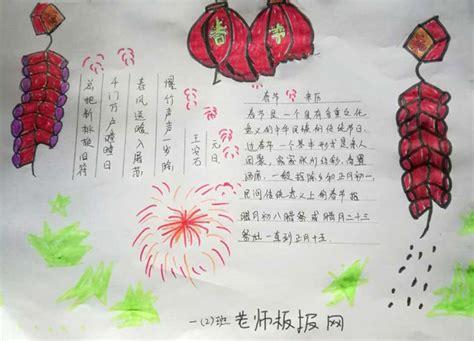 春节
元日
王安石
爆竹声声一岁除
春风送暖入屠苏
千门万户瞳瞳日
总把新桃换旧符
春节 来历
春节是一个具有多重文化
意义的中华民族的传统节日,
过春节一个基本形式是亲人
团聚,家家
酒席,一般指除夕和正月初一,
民间传统意义上的春节指
腊月初八腊祭或腊月二十三
祭灶一直到正月十五.
一(2)班 老师板报网